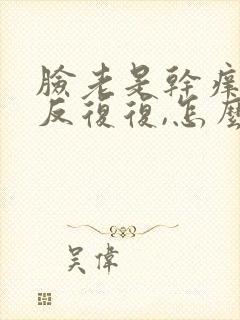 臉老是幹痒
反復復,怎麼
吴偉